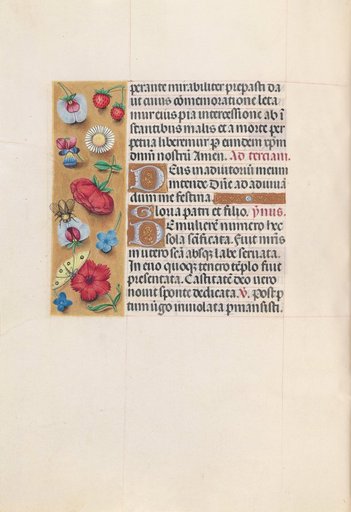 perante mirabiliter prepasti da
ut cuius cōmemoratione leta
mur eius pia intercessione ab ī
stantibus malis et a morte per
petua liberemur P eundem xp̄m
dnm̄ nostrū Amen. Ad terciam.
Deus in adiutoriū meum
intende Dn̄e ad adiuuā
dum me festina.
Gloria patri et filio. ymnus.
De mulierē numero hec
sola scificata. Fuit mr̄is
in utero seā absq; labe seruata.
In euo quoq; tenero tēplo fuit
presentata. Castitatē deo vero
nouit sponte dedicata. V. Post p
tum ūgo inuiolata pmansisti.